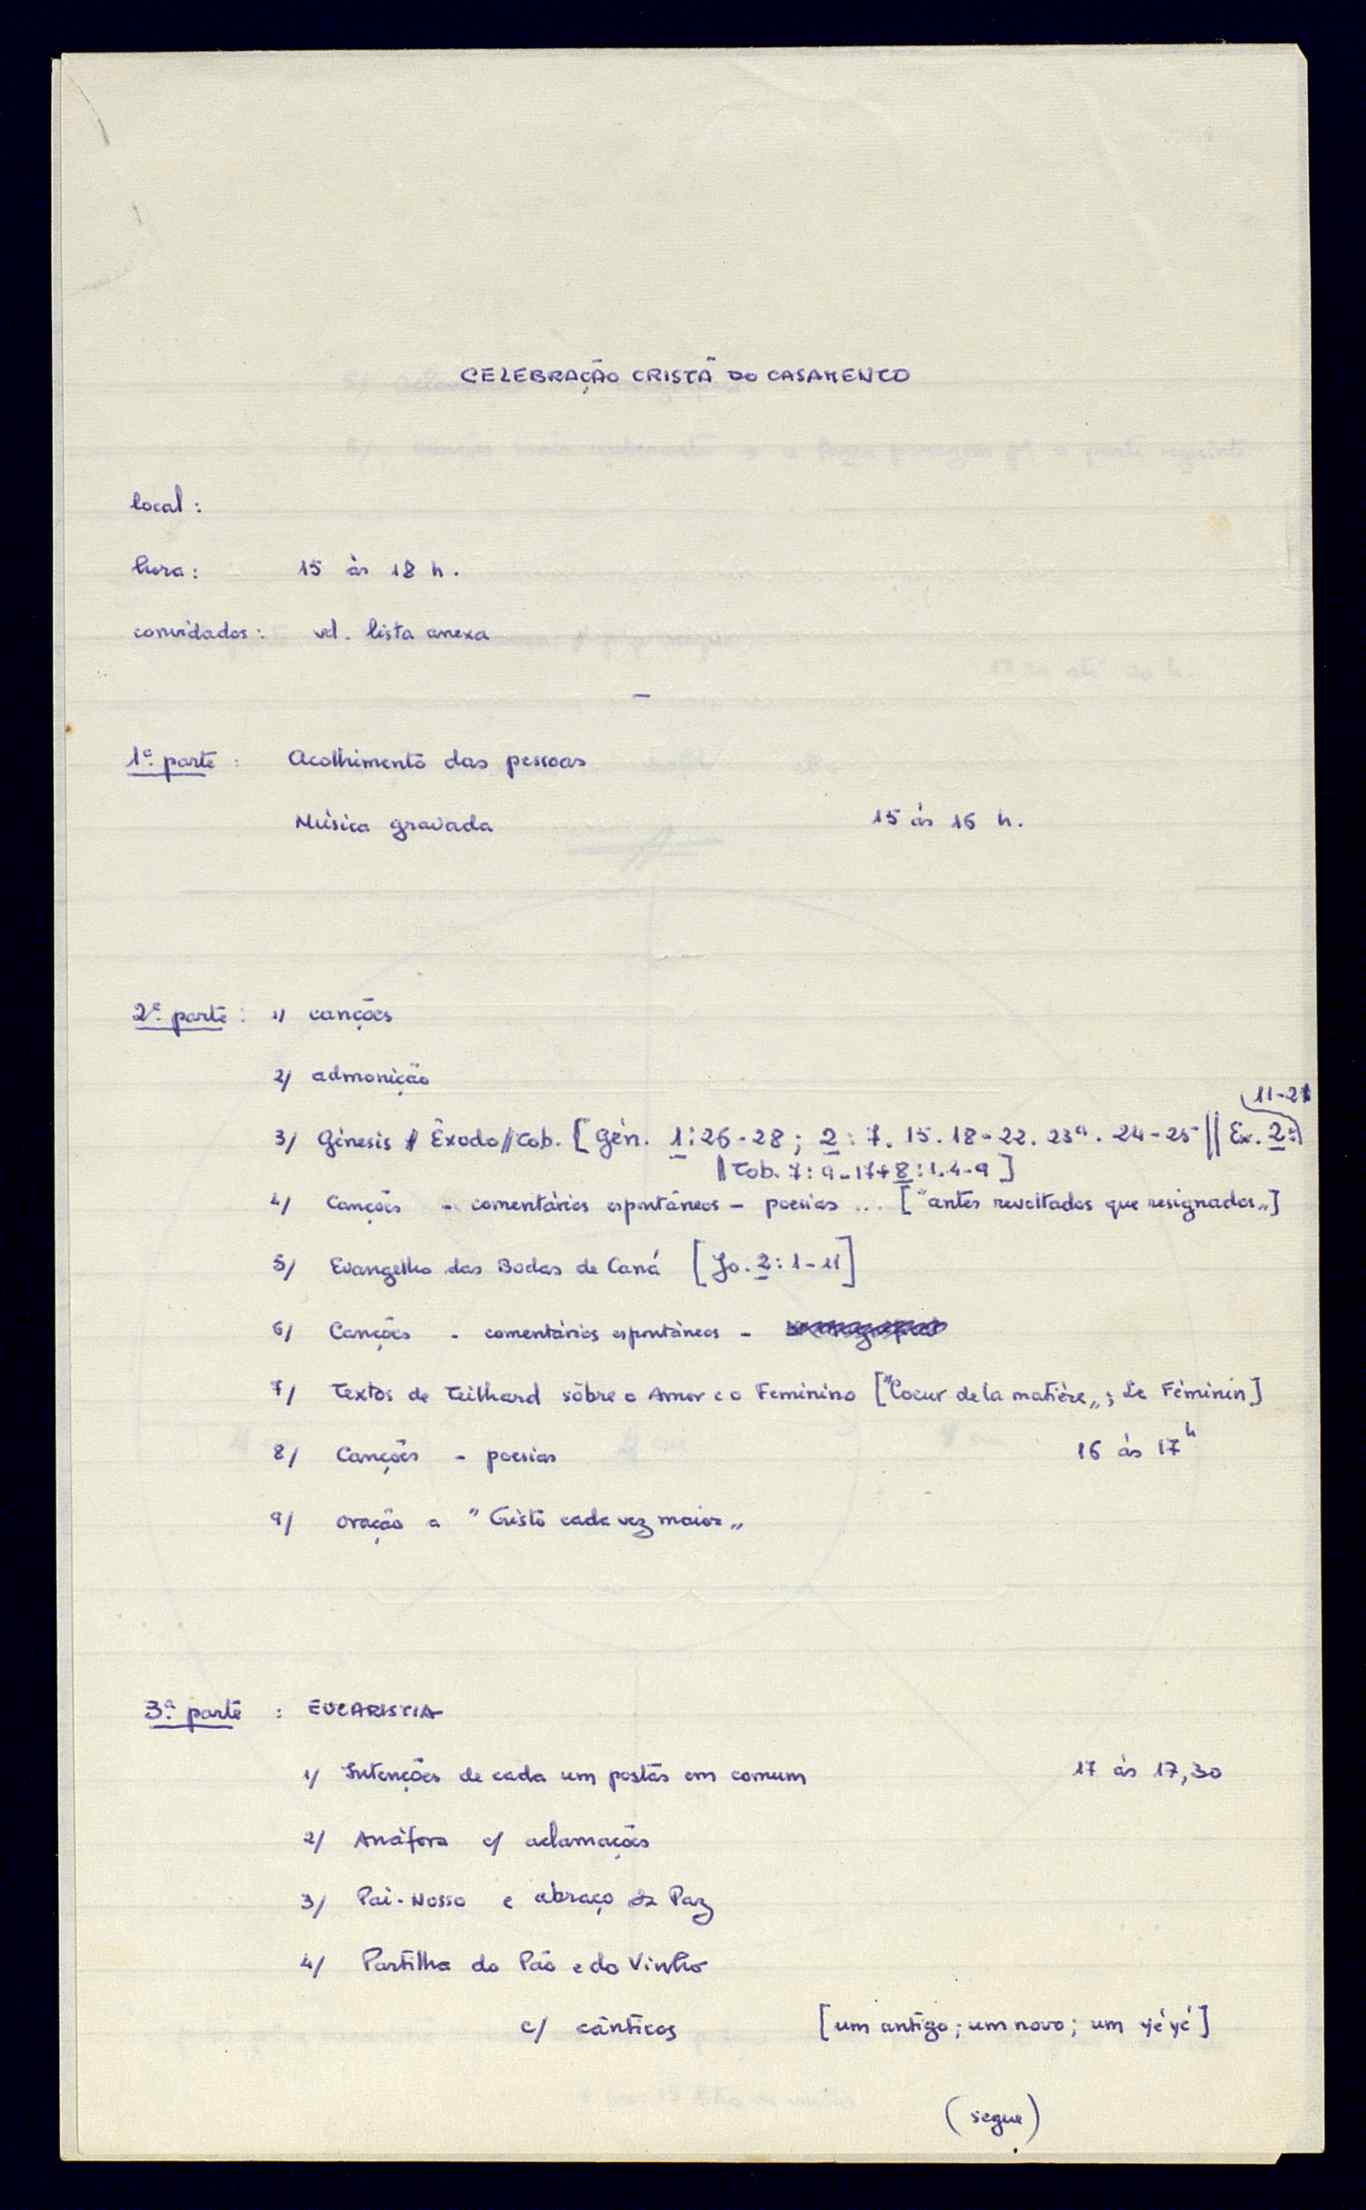 CELEBRAÇÃO CRISTÃ DO CASAMENTO
local :
hora : 15 às 18 h.
convidados : vd. lista anexa
—
1ª parte : Acolhimento das pessoas
Música gravada 15 às 16 h.
2ª parte : 1/ canções
2/ admonição
11-21
3/ Génesis // Êxodo // Tob. [ Gén. 1 : 26-28 ; 2 : 7. 15. 18-22. 23a. 24-25 || Ex. 2 :
|| Tob. 7 : 9-17 + 8 : 1. 4-9 ]
4/ Canções - comentários espontâneos - poesias ... [ "antes revoltados que resignados„ ]
5/ Evangelho das Bodas de Caná [ Jo. 2 : 1-11 ]
6/ Canções - comentários espontâneos -
7/ Textos de Teilhard sôbre o Amor e o Feminino [ "Coeur de la matière„ ; Le Féminin ]
8/ Canções - poesias 16 às 17h
9/ oração a "Cristo cada vez maior„
3ª parte : EUCARISTIA
1/ Intenções de cada um postas em comum 17 às 17,30
2/ Anáfora c/ aclamações
3/ Pai-Nosso e abraço da Paz
4/ Partilha do Pão e do Vinho
c/ cânticos [ um antigo ; um novo ; um yé yé ]
( segue )